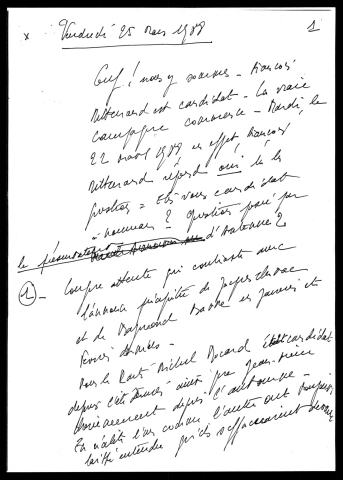 x Vendredi 25 mars 1988 1
Ouf ! nous y sommes - François
Mitterrand est candidat - La vraie
campagne commence - Mardi, le
22 mars 1988 en effet, François
Mitterrand répond oui à la
question = Etes vous candidat
à nouveau ? Question posée par
le présentateur d'Antenne 2
① - Longue attente qui contraste avec
l'annonce précipitée de Jacques Chirac
et de Raymond Barre en Janvier et
Février derniers -
Pour le reste Michel Rocard était candidat
depuis l'été dernier - ainsi que Jean-Marie
depuis l'automne -
En réalité l'un comme l'autre ont toujours
laissé entendre qu'ils s'effaceraient devant